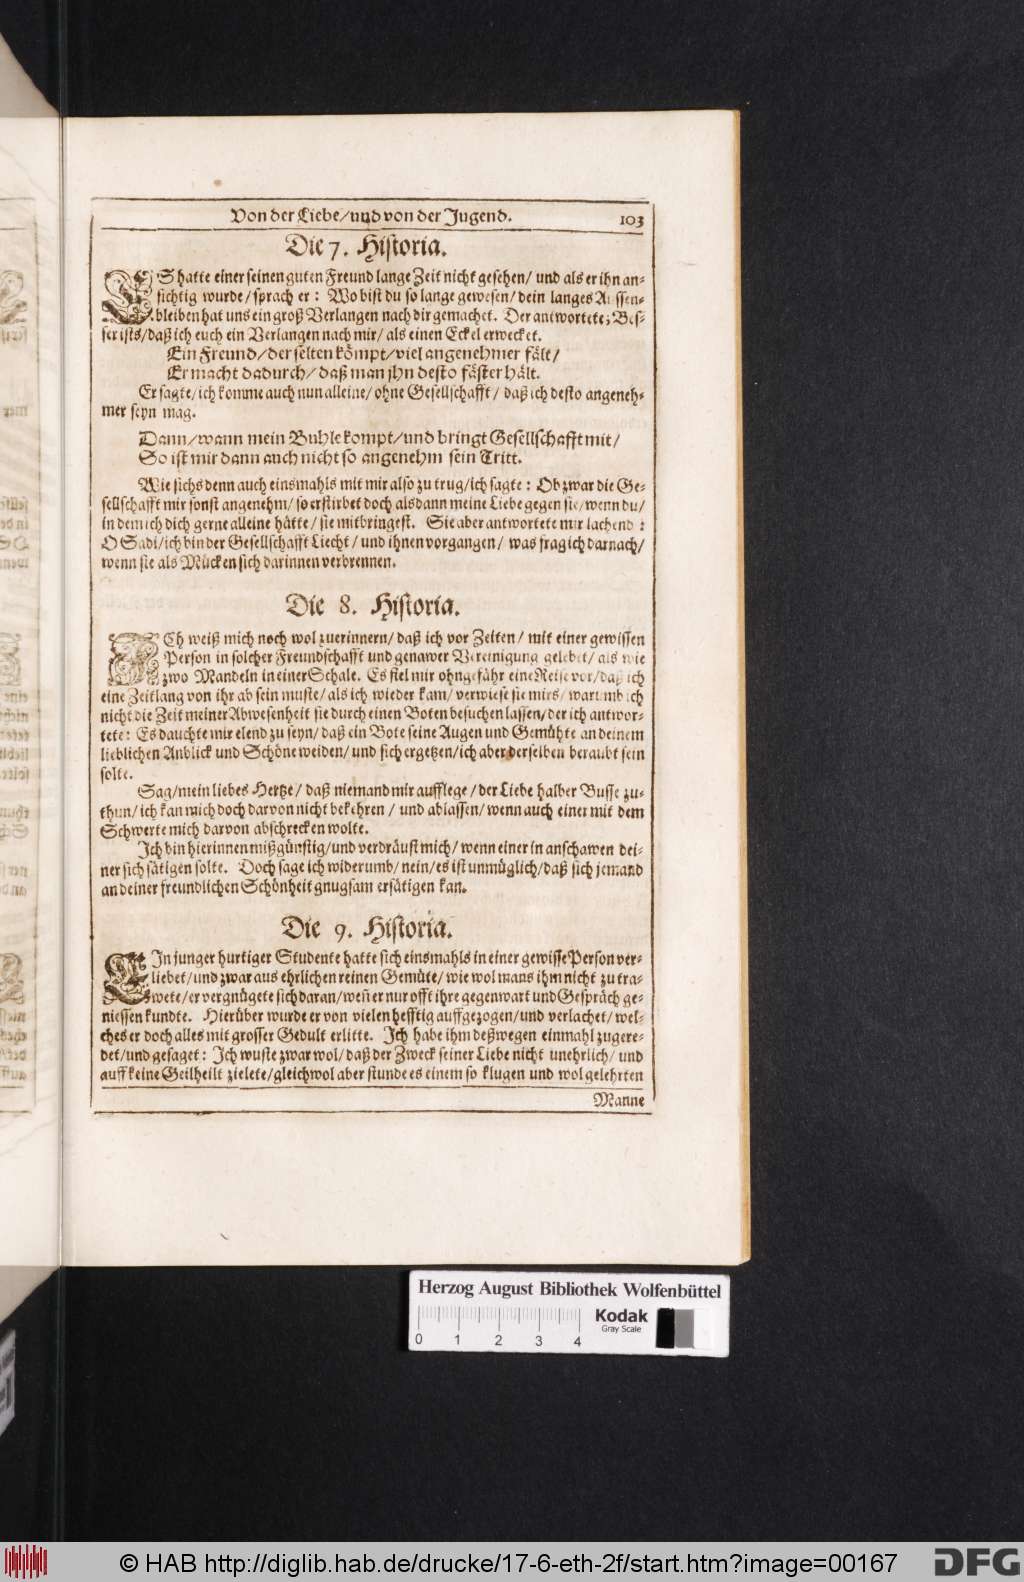 Von der Liebe/und von der Jugend. 103
Die 7. Historia.
ES hatte einer seinen guten Freund lange Zeit nicht gesehen/ und als er ihn an-
sichtig wurde/sprach er: Wo bist du so lange gewesen/dein langes Aussen-
bleiben hat uns ein groß Verlangen nach dir gemachet. Der antwortete; Bes-
ser ists/daß ich euch ein Verlangen nach mir/ als einen Eckel erwecket.
Ein Freund/der selten kömpt/viel angenehmer fält/
Er macht dadurch/ daß man jhn desto fäster hält.
Er sagte/ich komme auch nun alleine/ohne Gesellschafft/ daß ich desto angeneh-
mer seyn mag.
Dann/wann mein Buhle kompt/und bringt Gesellschafft mit/
So ist mir dann auch nicht so angenehm sein Tritt.
Wie sichs denn auch einsmahls mit mir also zu trug/ich sagte: Ob zwar die Ge-
sellschafft mir sonst angenehm/ so erstirbet doch als dann meine Liebe gegen sie/wenn du/
in dem ich dich gerne alleine hätte/ sie mitbringest. Sie aber antwortete mir lachend:
O Sadi/ich bin der Gesellschafft Liecht/ und ihnen vorgangen/ was frag ich darnach/
wenn sie als Mücken sich darinnen verbrennen.
Die 8. Historia.
ICh weiß mich noch wol zuerinnern/ daß ich vor Zeiten/ mit einer gewissen
Person in solcher Freundschafft und genawer Vereinigung gelebet/ als wie
zwo Mandeln in einer Schale. Es fiel mir ohngefähr eine Reise vor/daß ich
eine Zeitlang von ihr ab sein muste/als ich wieder kam/verwiese sie mirs/warumb ich
nicht die Zeit meiner Abwesenheit sie durch einen Boten besuchen lassen/der ich antwor-
tete: Es dauchte mir elend zu seyn/daß ein Bote seine Augen und Gemühte an deinem
lieblichen Anblick und Schöne weiden/und sich ergetzen/ich aber derselben beraubt sein
solte.
Sag/mein liebes Hertze/ daß niemand mir aufflege/der Liebe halber Busse zu-
thun/ich kan mich doch darvon nicht bekehren/ und ablassen/wenn auch einer mit dem
Schwerte mich darvon abschrecken wolte.
Ich bin hierinnen mißgünstig/und verdräust mich/wenn einer in anschawen dei-
ner sich sätigen solte. Doch sage ich widerumb/nein/es ist unmüglich/daß sich jemand
an deiner freundlichen Schönheit gnugsam ersätigen kan.
Die 9. Historia.
EIn junger hurtiger Studente hatte sich einsmahls in einer gewisse Person ver-
liebet/und zwar aus ehrlichen reinen Gemüte/wie wol mans ihm nicht zu tra-
wete/er vergnügete sich daran/weñ er nur offt ihre gegenwart und Gespräch ge-
niessen kundte. Hierüber wurde er von vielen hefftig auffgezogen/und verlachet/wel-
ches er doch alles mit grosser Gedult erlitte. Ich habe ihm deßwegen einmahl zugere-
det/und gesaget: Ich wuste zwar wol/daß der Zweck seiner Liebe nicht unehrlich/ und
auff keine Geilheilt zielete/gleichwol aber stunde es einem so klugen und wol gelehrten
Manne
Herzog August Bibliothek Wolfenbüttel
Kodak
Gray Scale
0 1 2 3 4
© HAB http://diglib.hab.de/drucke/17-6-eth-2f/start.htm?image=00167
DFG